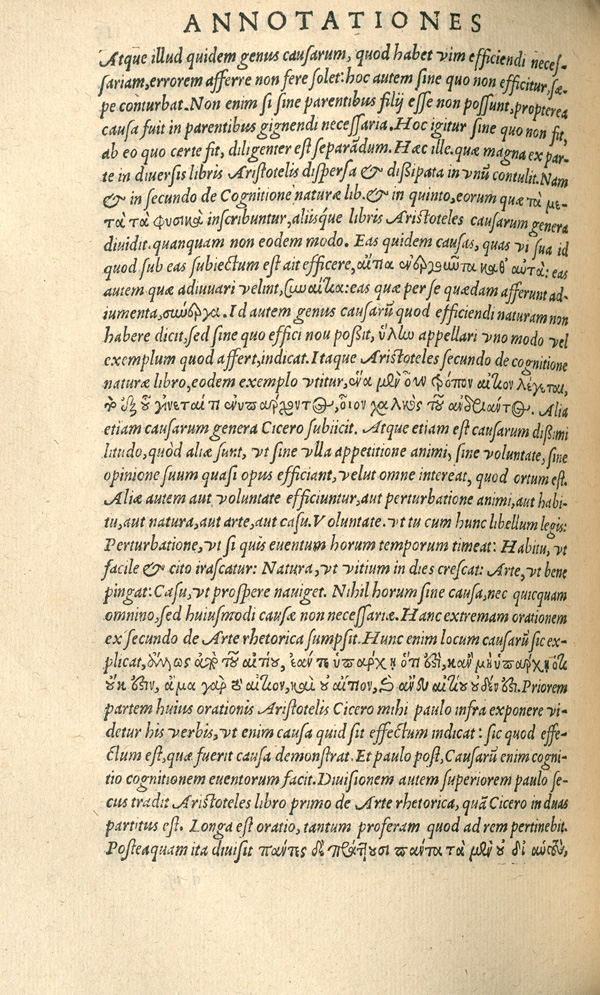 ANNOTATIONES
Atque illud quidem genus causarum, quod habet vim efficiendi neces-
sariam, errorem afferre non fere solet: hoc autem sine quo non efficitur, sæ-
pe conturbat. Non enim si sine parentibus filij esse non possunt, propterea
causa fuit in parentibus gignendi necessaria. Hoc igitur sine quo non fit,
ab eo quo certe fit, diligenter est separādum. Hæc ille. quæ magna ex par-
te in diversis libris Aristotelis dispersa & dissipata in vnū contulit. Nam
& in secundo de Cognitione naturæ lib. & in quinto, eorum quæ τὰ με-
τὰ τὰ φυσικὰ inscribuntur, aliisque libris Aristoteles causarum genera
dividit. quanquam non eodem modo. Eas quidem causas, quas vi sua id
quod sub eas subiectum est ait efficere, αἴτια ἐνεργοῦντα καθ' αὑτά: eas
autem quæ adiuvari velint, ξυναίτια: eas quæ per se quædam afferunt ad-
iumenta, σύνεργα. Id autem genus causarū quod efficiendi naturam non
habere dicit, sed sine quo effici nou possit, ὕλην appellari vno modo vel
exemplum quod affert, indicat. Itaque Aristoteles secundo de cognitione
naturæ libro, eodem exemplo vtitur, ἕνα μὲν οὖν τρόπον αἴτιον λέγεται,
τὸ ἐξ οὗ γίνεταί τι ἐνυπάρχοντος, οἷον χαλκὸς τοῦ ἀνδριάντος. Alia
etiam causarum genera Cicero subiicit. Atque etiam est causarum dissimi
litudo, quòd aliæ sunt, vt sine vlla appetitione animi, sine voluntate, sine
opinione suum quasi opus efficiant, velut omne intereat, quod ortum est.
Aliæ autem aut voluntate efficiuntur, aut perturbatione animi, aut habi-
tu, aut natura, aut arte, aut casu. Voluntate. vt tu cum hunc libellum legis:
Perturbatione, vt si quis eventum horum temporum timeat: Habitu, vt
facile & cito irascatur: Natura, vt vitium in dies crescat: Arte, vt bene
pingat: Casu, vt prospere naviget. Nihil horum sine causa, nec quicquam
omnino, sed huiusmodi causæ non necessariæ. Hanc extremam orationem
ex secundo de Arte rhetorica sumpsit. Hunc enim locum causarū sic ex-
plicat, ἄλλος ἀπὸ τοῦ αἰτίου, ἐάν τε ὑπάρχῃ ὅτι ἐστι, κἂν μὴ ὑπάρχῃ ὅτι
οὐκ ἔστιν, ἅμα γὰρ τὸ αἴτιον, καὶ οὗ αἴτιον, καὶ ἄνευ αἰτίου οὐδέν ἐστι. Priorem
partem huius orationis Aristotelis Cicero mihi paulo infra exponere vi-
detur his verbis, vt enim causa quid sit effectum indicat: sic quod effe-
ctum est, quæ fuerit causa demonstrat. Et paulo post, Causarū enim cogni-
tio cognitionem eventorum facit. Divisionem autem superiorem paulo se-
cus tradit Aristoteles libro primo de Arte rhetorica, quā Cicero in duas
partitus est. Longa est oratio, tantum proferam quod ad rem pertinebit.
Posteaquam ita divisit πάντες δὲ πράττουσι πάντα τὰ μὲν οὐ δι' αὑτοὺς,